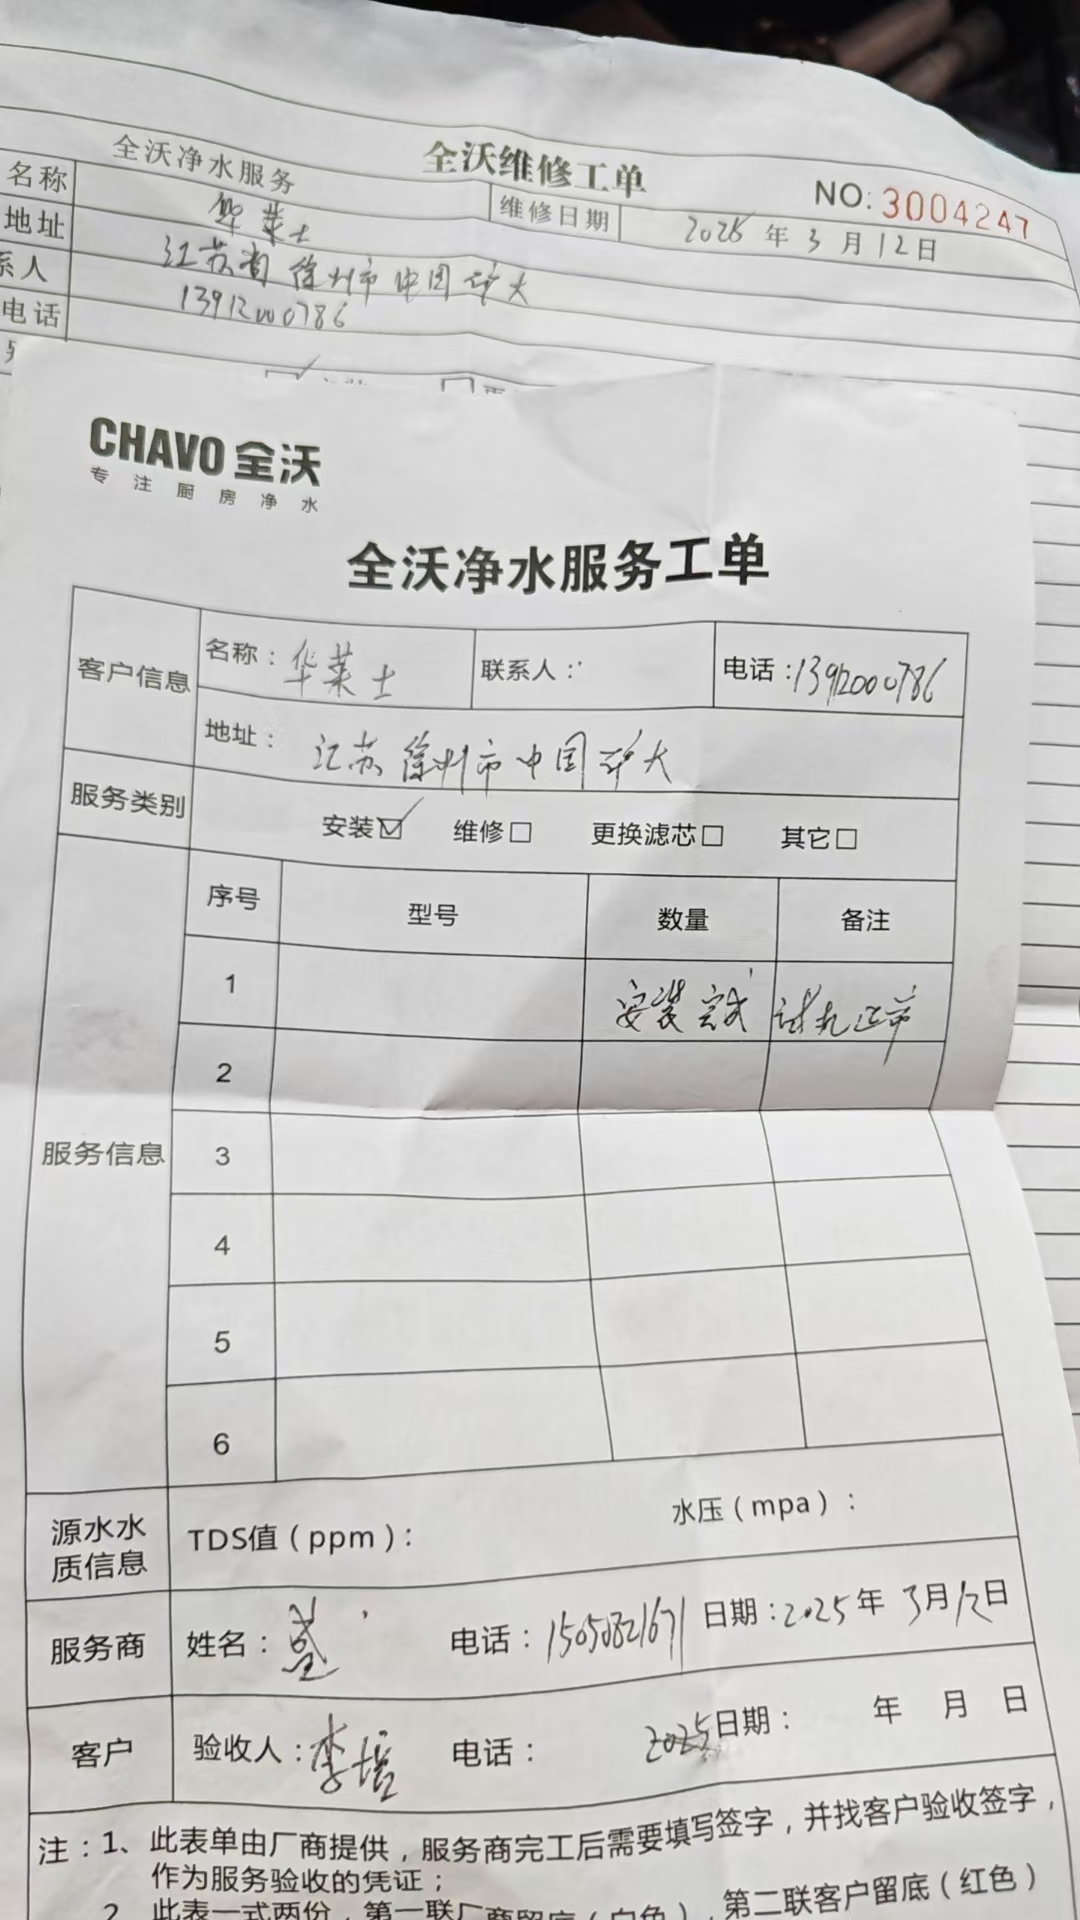 全沃净水服务
全沃维修工单
NO: 3004247
名称 华莱士 维修日期 2025年3月12日
地址 江苏省徐州市中国矿大
系人
电话 13912000786
CHAVO 全沃
专注厨房净水
全沃净水服务工单
客户信息 名称：华莱士 联系人： 电话：13912000786
地址： 江苏徐州市中国矿大
服务类别 安装☑ 维修□ 更换滤芯□ 其它□
服务信息 序号 型号 数量 备注
1 安装完成 试机正常
2
3
4
5
6
源水水质信息 TDS值（ppm）： 水压（mpa）：
服务商 姓名： 电话：15050821671 日期：2025年3月12日
客户 验收人：李培 电话： 2025 日期： 年 月 日
注：1、此表单由厂商提供，服务商完工后需要填写签字，并找客户验收签字，
作为服务验收的凭证；
2 此表一式两份，第一联厂商留底（白色），第二联客户留底（红色）